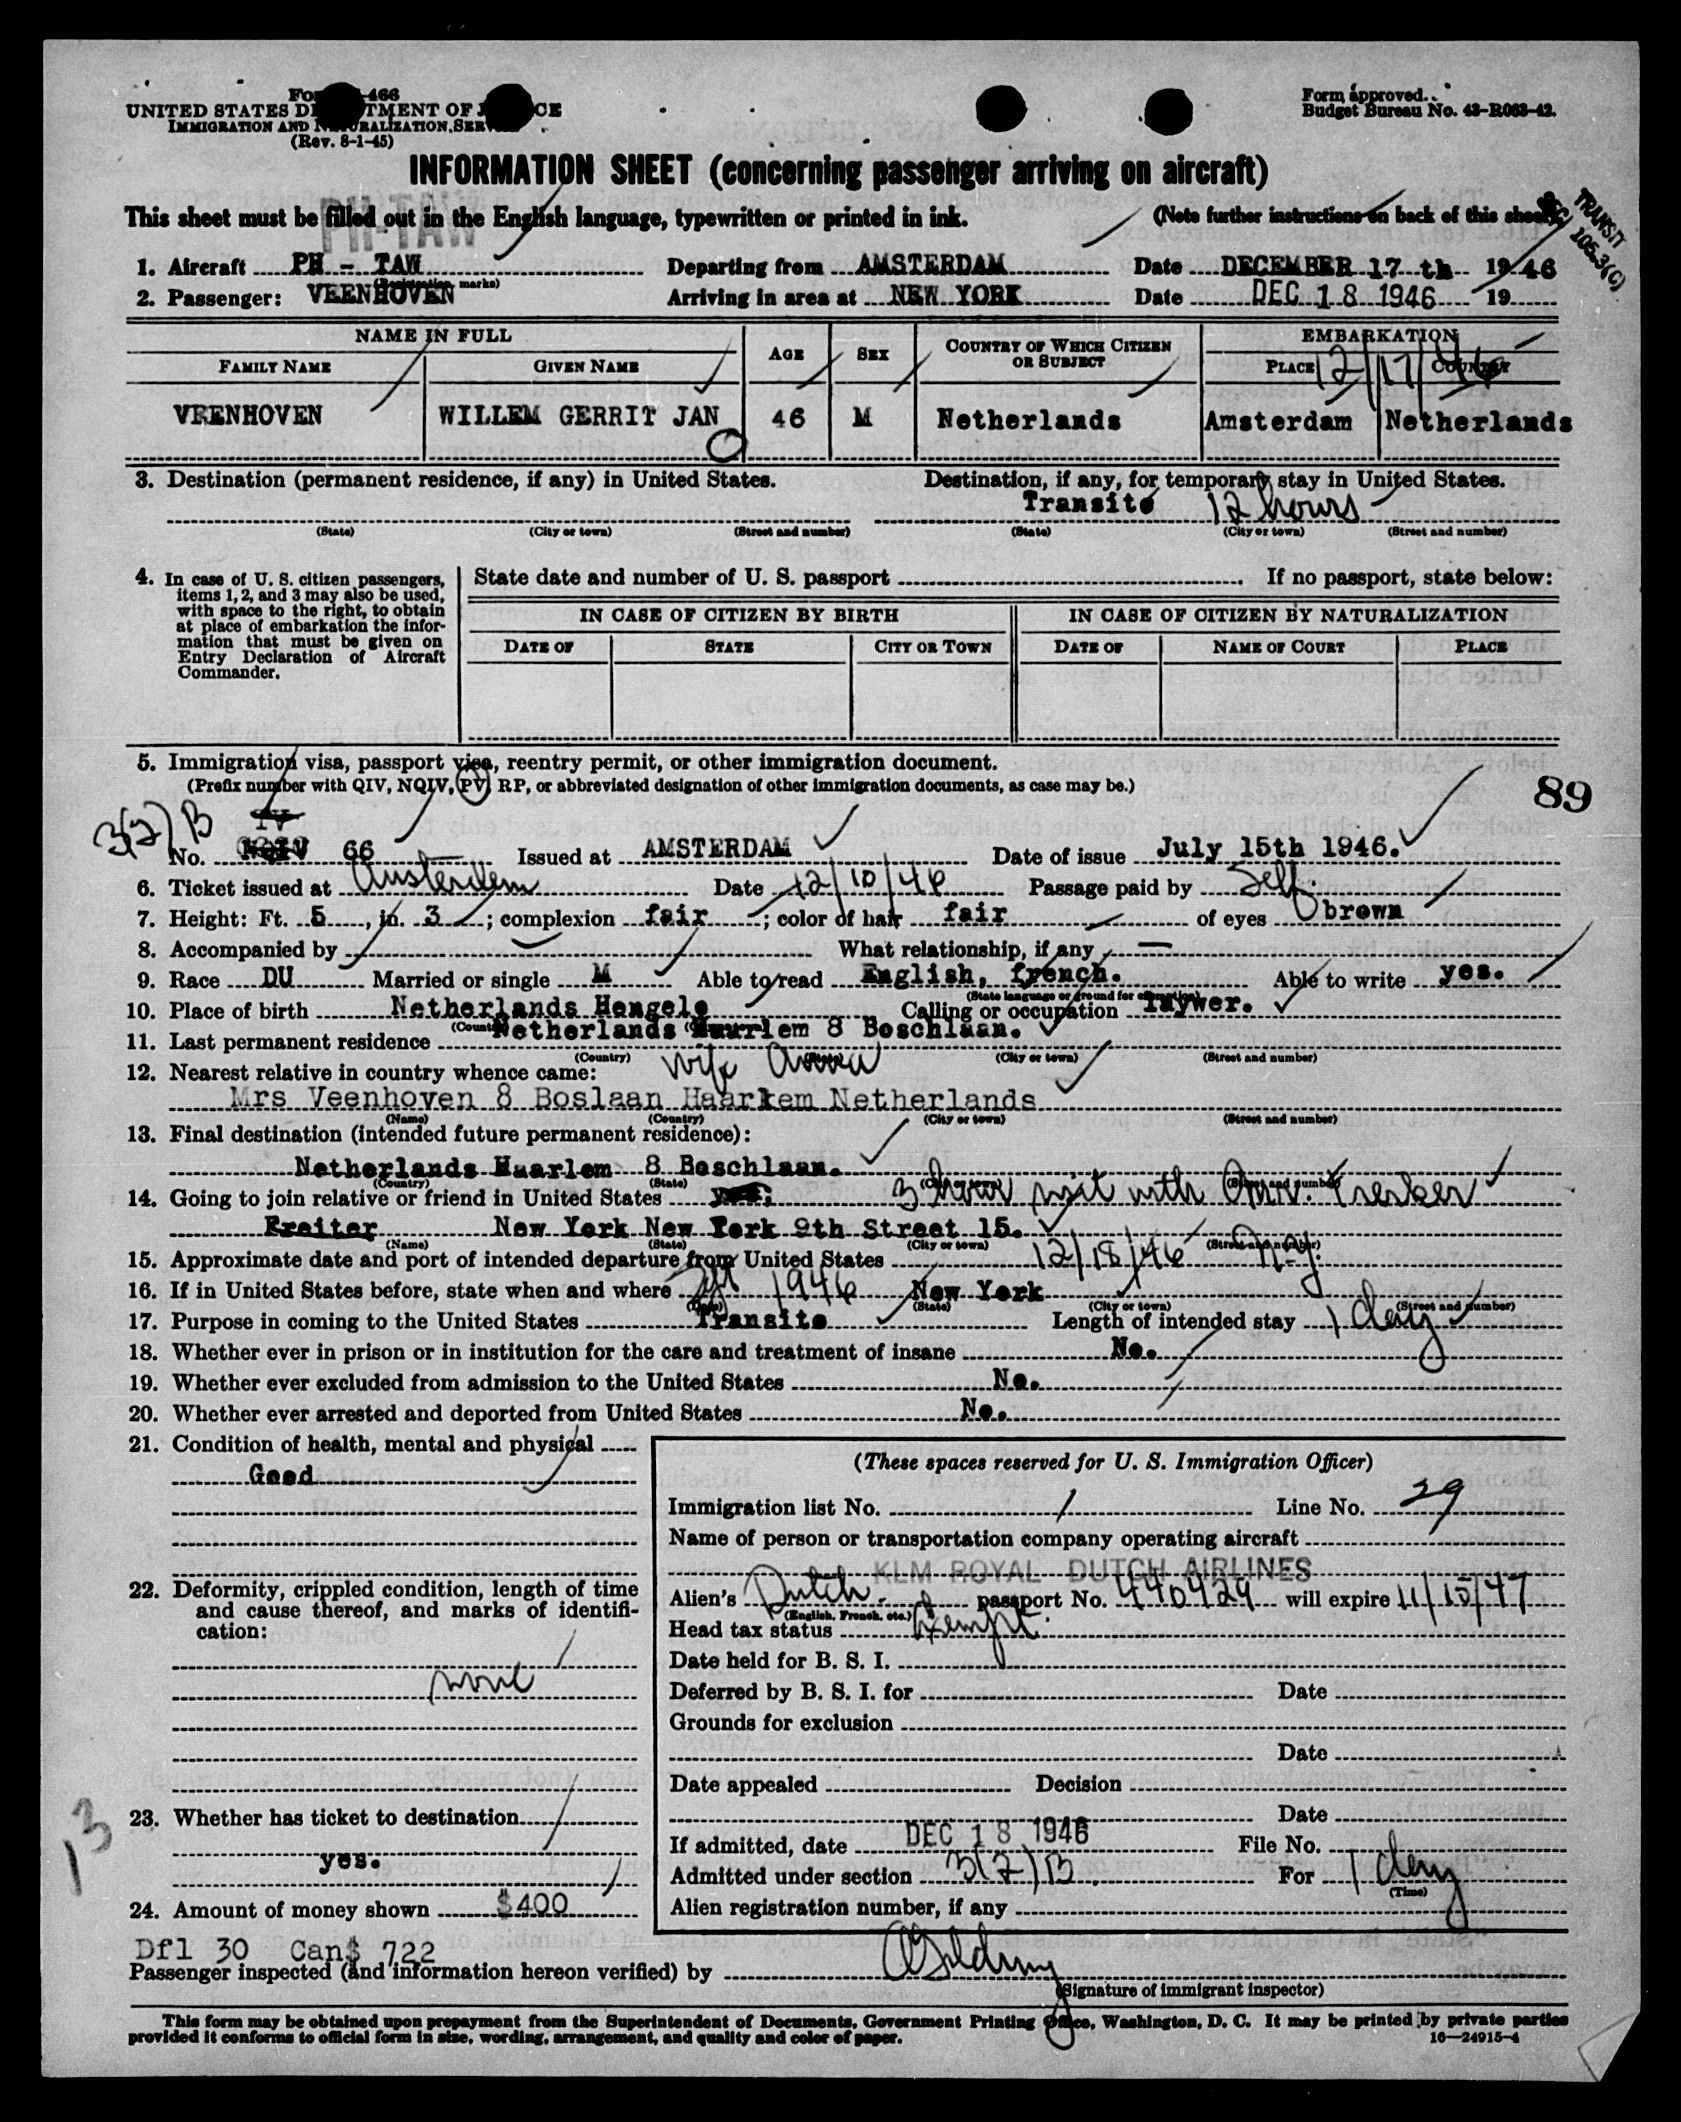 Form 466
UNITED STATES DEPARTMENT OF JUSTICE
IMMIGRATION AND NATURALIZATION SERVICE
(Rev. 8-1-45)
Form approved.
Budget Bureau No. 43-R063-42.
INFORMATION SHEET (concerning passenger arriving on aircraft)
PH-TAW
This sheet must be filled out in the English language, typewritten or printed in ink. (Note further instructions on back of this sheet)
TRANSIT
SEC. 105.3(C)
1. Aircraft PH - TAW Departing from AMSTERDAM Date DECEMBER 17 th 1946
(Registration marks)
2. Passenger: VEENHOVEN Arriving in area at NEW YORK Date DEC 18 1946 19
NAME IN FULL AGE SEX COUNTRY OF WHICH CITIZEN OR SUBJECT EMBARKATION
FAMILY NAME GIVEN NAME PLACE COUNTRY
12/17/46
VEENHOVEN WILLEM GERRIT JAN 46 M Netherlands Amsterdam Netherlands
3. Destination (permanent residence, if any) in United States. Destination, if any, for temporary stay in United States.
Transito 12 hours
(State) (City or town) (Street and number) (State) (City or town) (Street and number)
4. In case of U. S. citizen passengers, items 1, 2, and 3 may also be used, with space to the right, to obtain at place of embarkation the information that must be given on Entry Declaration of Aircraft Commander.
State date and number of U. S. passport . If no passport, state below:
IN CASE OF CITIZEN BY BIRTH IN CASE OF CITIZEN BY NATURALIZATION
DATE OF STATE CITY OR TOWN DATE OF NAME OF COURT PLACE
5. Immigration visa, passport visa, reentry permit, or other immigration document.
(Prefix number with QIV, NQIV, PV, RP, or abbreviated designation of other immigration documents, as case may be.)
89
3(2)B
No. 66 Issued at AMSTERDAM Date of issue July 15th 1946.
6. Ticket issued at Amsterdam Date 12/10/46 Passage paid by Self.
7. Height: Ft. 5, in. 3; complexion fair; color of hair fair of eyes brown
8. Accompanied by What relationship, if any —
9. Race DU Married or single M Able to read English, french. Able to write yes.
(State language or ground for exemption)
10. Place of birth Netherlands Hengelo Calling or occupation laywer.
11. Last permanent residence Netherlands Haarlem 8 Boschlaan.
(Country) (City or town) (Street and number)
12. Nearest relative in country whence came: wife
Mrs Veenhoven 8 Boslaan Haarlem Netherlands
(Name) (Country) (City or town) (Street and number)
13. Final destination (intended future permanent residence):
Netherlands Haarlem 8 Boschlaan.
(Country) (State) (City or town) (Street and number)
14. Going to join relative or friend in United States yes. 3 hour visit with Mr.
Kreiter New York New York 9th Street 15.
(Name) (State) (City or town) (Street and number)
15. Approximate date and port of intended departure from United States 12/18/46 N.Y.
16. If in United States before, state when and where 1946 New York
(Date) (State) (City or town) (Street and number)
17. Purpose in coming to the United States Transito Length of intended stay 1 day
18. Whether ever in prison or in institution for the care and treatment of insane No.
19. Whether ever excluded from admission to the United States No.
20. Whether ever arrested and deported from United States No.
21. Condition of health, mental and physical
Good
22. Deformity, crippled condition, length of time and cause thereof, and marks of identification:
none
23. Whether has ticket to destination
yes.
13
24. Amount of money shown $400
Dfl 30 Can$ 722
(These spaces reserved for U. S. Immigration Officer)
Immigration list No. 1 Line No. 29
Name of person or transportation company operating aircraft
KLM ROYAL DUTCH AIRLINES
Alien's Dutch passport No. 440424 will expire 11/15/47
(English, French, etc.)
Head tax status Exempt.
Date held for B. S. I.
Deferred by B. S. I. for Date
Grounds for exclusion
Date
Date appealed Decision
Date
If admitted, date DEC 18 1946 File No.
Admitted under section 3(2)B For 1 day
(Time)
Alien registration number, if any
Passenger inspected (and information hereon verified) by
(Signature of immigrant inspector)
This form may be obtained upon prepayment from the Superintendent of Documents, Government Printing Office, Washington, D. C. It may be printed by private parties
provided it conforms to official form in size, wording, arrangement, and quality and color of paper. 16—24915-4